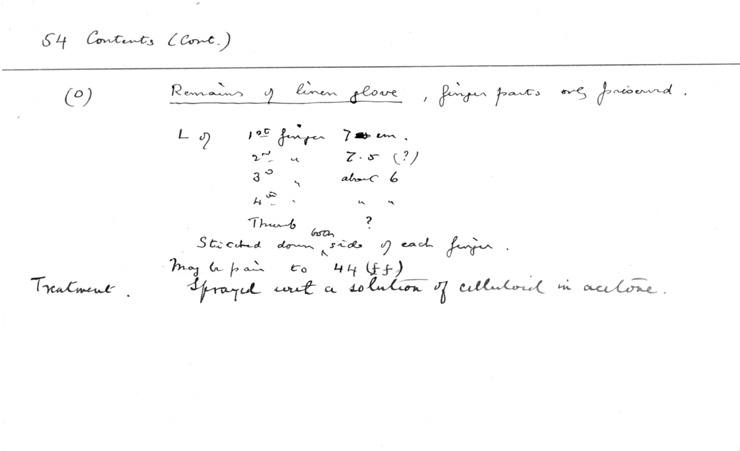 54 Contents (Cont.)
(O) Remains of linen glove, finger parts only preserved.
L of 1st finger 7 cm.
2nd " 7.5 (?)
3d " about 6
4th " " "
Thumb ?
Stitched down both side of each finger.
May be pair to 44 (ff)
Treatment. Sprayed with a solution of celluloid in acetone.